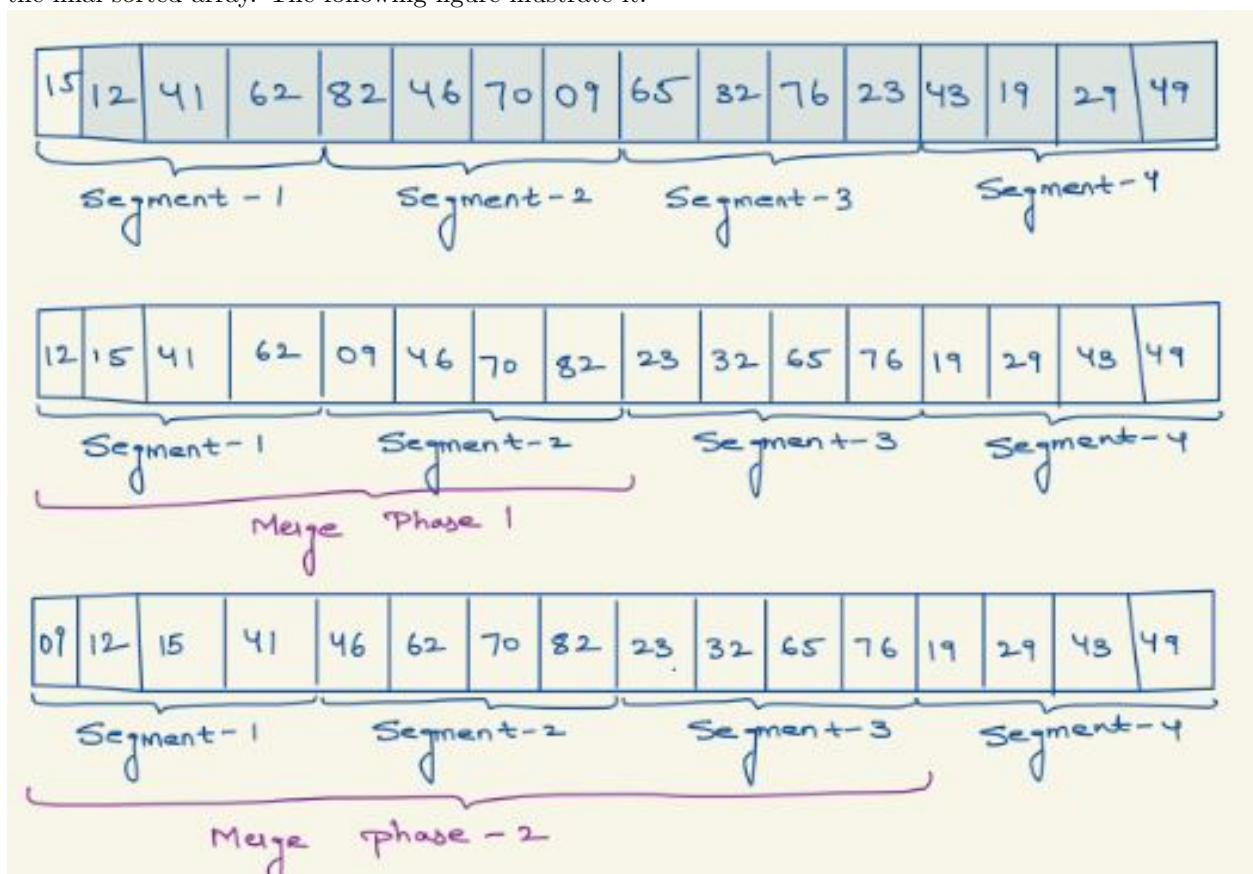 the final sorted array. The following figure illustrate it.
15 12 41 62 82 46 70 09 65 32 76 23 43 19 29 49
Segment-1 Segment-2 Segment-3 Segment-4
12 15 41 62 09 46 70 82 23 32 65 76 19 29 43 49
Segment-1 Segment-2 Segment-3 Segment-4
Merge Phase 1
09 12 15 41 46 62 70 82 23 32 65 76 19 29 43 49
Segment-1 Segment-2 Segment-3 Segment-4
Merge phase-2